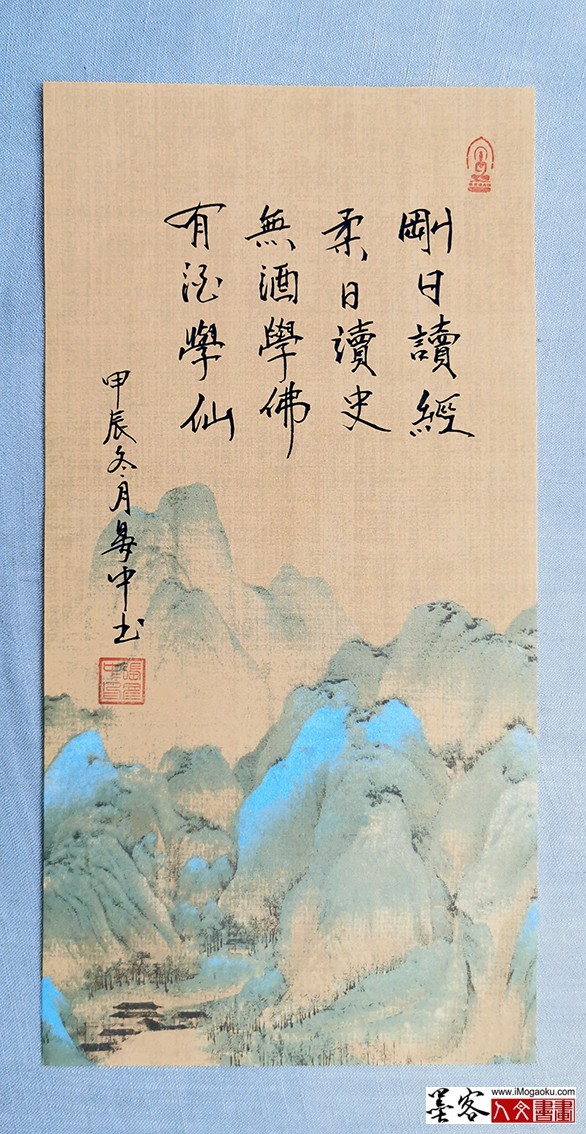 剛日讀經
柔日讀史
無酒學佛
有酒學仙
甲辰冬月
中書
www.iMogaoku.com
墨客人文書畫